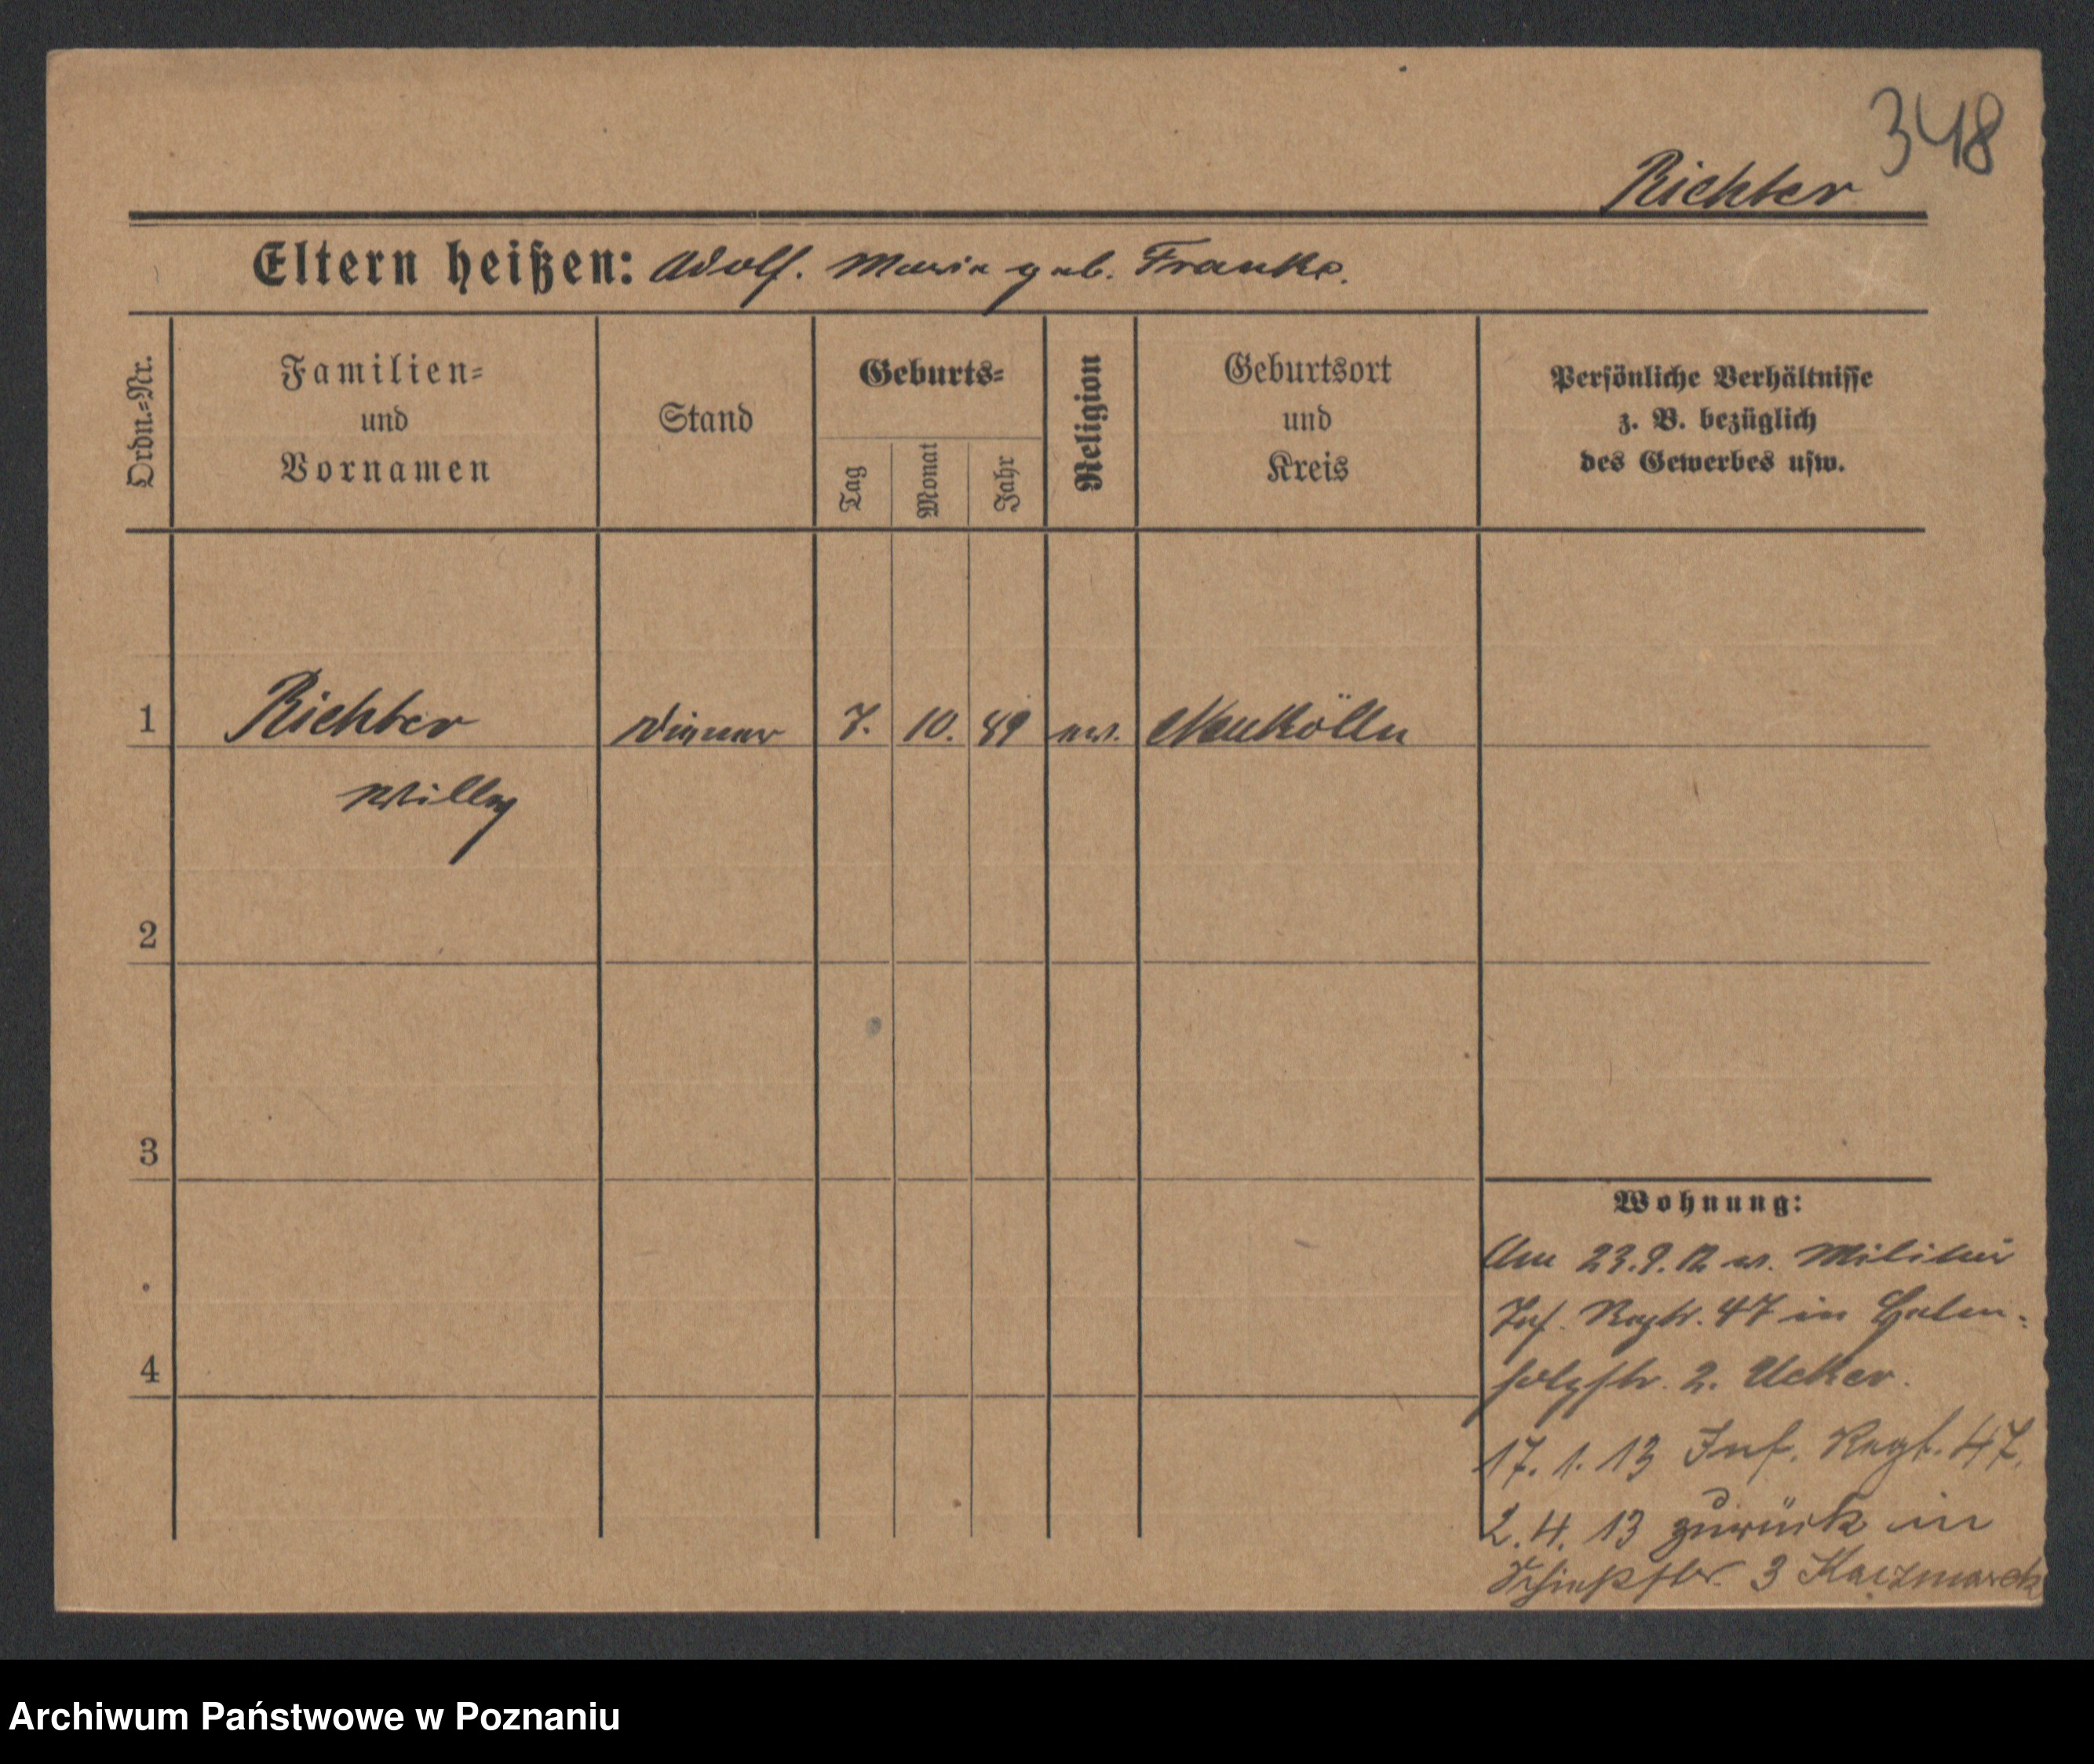 348
Richter
Eltern heißen: Adolf. Maria geb. Franke.
Ordn.=Nr.
Familien=
und
Vornamen
Stand
Geburts=
Tag
Monat
Jahr
Religion
Geburtsort
und
Kreis
Persönliche Verhältnisse
z. B. bezüglich
des Gewerbes usw.
1 Richter Diener 7. 10. 89 ev. Neukölln
Willy
2
3
4
Wohnung:
Am 23.9.12 v. Militär
Inf. Regtr. 47 in
2. Ucker.
17. 1. 13 Inf. Regt. 47.
2. 4. 13 zurück in
Schießstr. 3 Kaczmarek
Archiwum Państwowe w Poznaniu